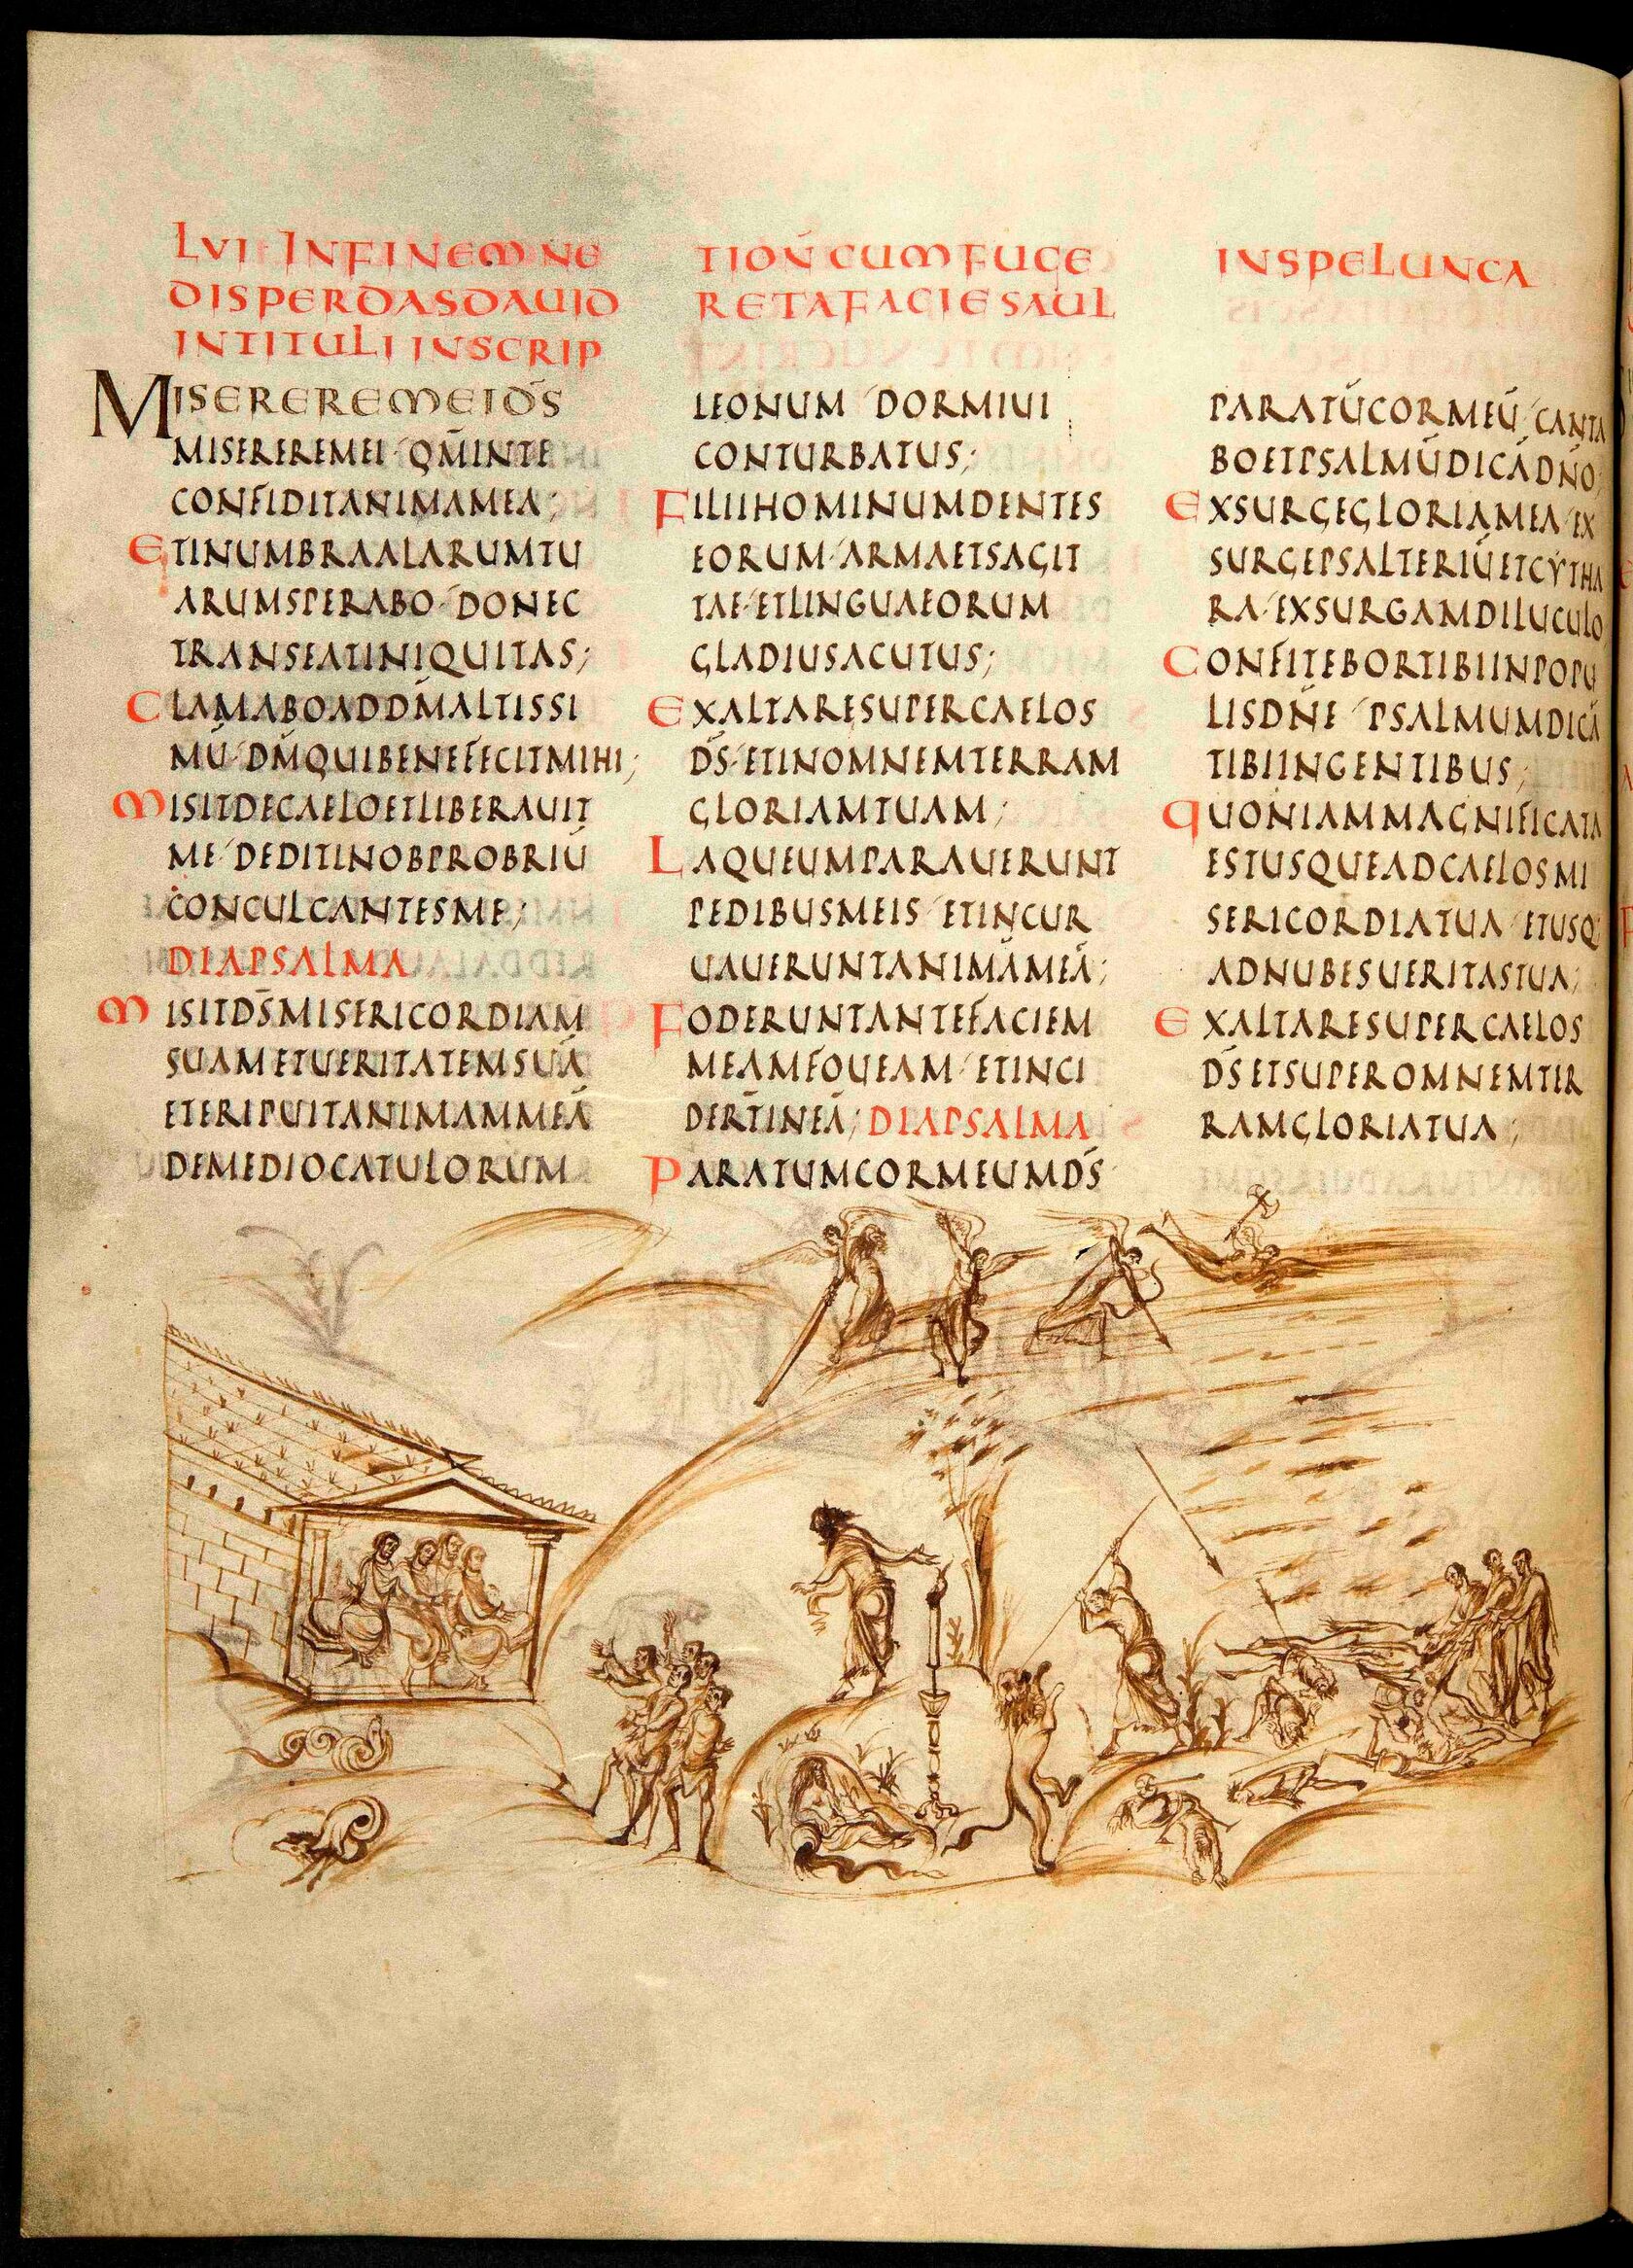 LVI INFINEM NE
DISPERDAS DAUID
IN TITULI INSCRIP
TIOÑ CUM FUGE
RET A FACIE SAUL
IN SPELUNCA
MISERERE MEI D̄S
MISERERE MEI QM̄ IN TE
CONFIDIT ANIMA MEA;
ET IN UMBRA ALARUM TU
ARUM SPERABO DONEC
TRANSEAT INIQUITAS;
CLAMABO AD DM̄ ALTISSI
MŪ DM̄ QUI BENEFECIT MIHI;
MISIT DE CAELO ET LIBERAUIT
ME DEDIT IN OBPROBRIŪ
CONCULCANTES ME;
DIAPSALMA
MISIT D̄S MISERICORDIAM
SUAM ET UERITATEM SUĀ
ET ERIPUIT ANIMAM MEĀ
DE MEDIO CATULORUM
LEONUM DORMIUI
CONTURBATUS;
FILII HOMINUM DENTES
EORUM ARMA ET SAGIT
TAE ET LINGUA EORUM
GLADIUS ACUTUS;
EXALTARE SUPER CAELOS
D̄S ET IN OMNEM TERRAM
GLORIAM TUAM;
LAQUEUM PARAUERUNT
PEDIBUS MEIS ET INCUR
UAUERUNT ANIMĀ MEĀ;
FODERUNT ANTE FACIEM
MEAM FOUEAM ET INCI
DERT̄ IN EĀ; DIAPSALMA
PARATUM COR MEUM D̄S
PARATŪ COR MEŪ CANTA
BO ET PSALMŪ DICĀ DÑO;
EXSURGE GLORIA MEA EX
SURGE PSALTERIŪ ET CYTHA
RA EXSURGAM DILUCULO
CONFITEBOR TIBI IN POPU
LIS DÑE PSALMUM DICĀ
TIBI IN GENTIBUS;
QUONIAM MAGNIFICATA
EST USQUE AD CAELOS MI
SERICORDIA TUA ET USQ
AD NUBES UERITAS TUA;
EXALTARE SUPER CAELOS
D̄S ET SUPER OMNEM TER
RAM GLORIA TUA;